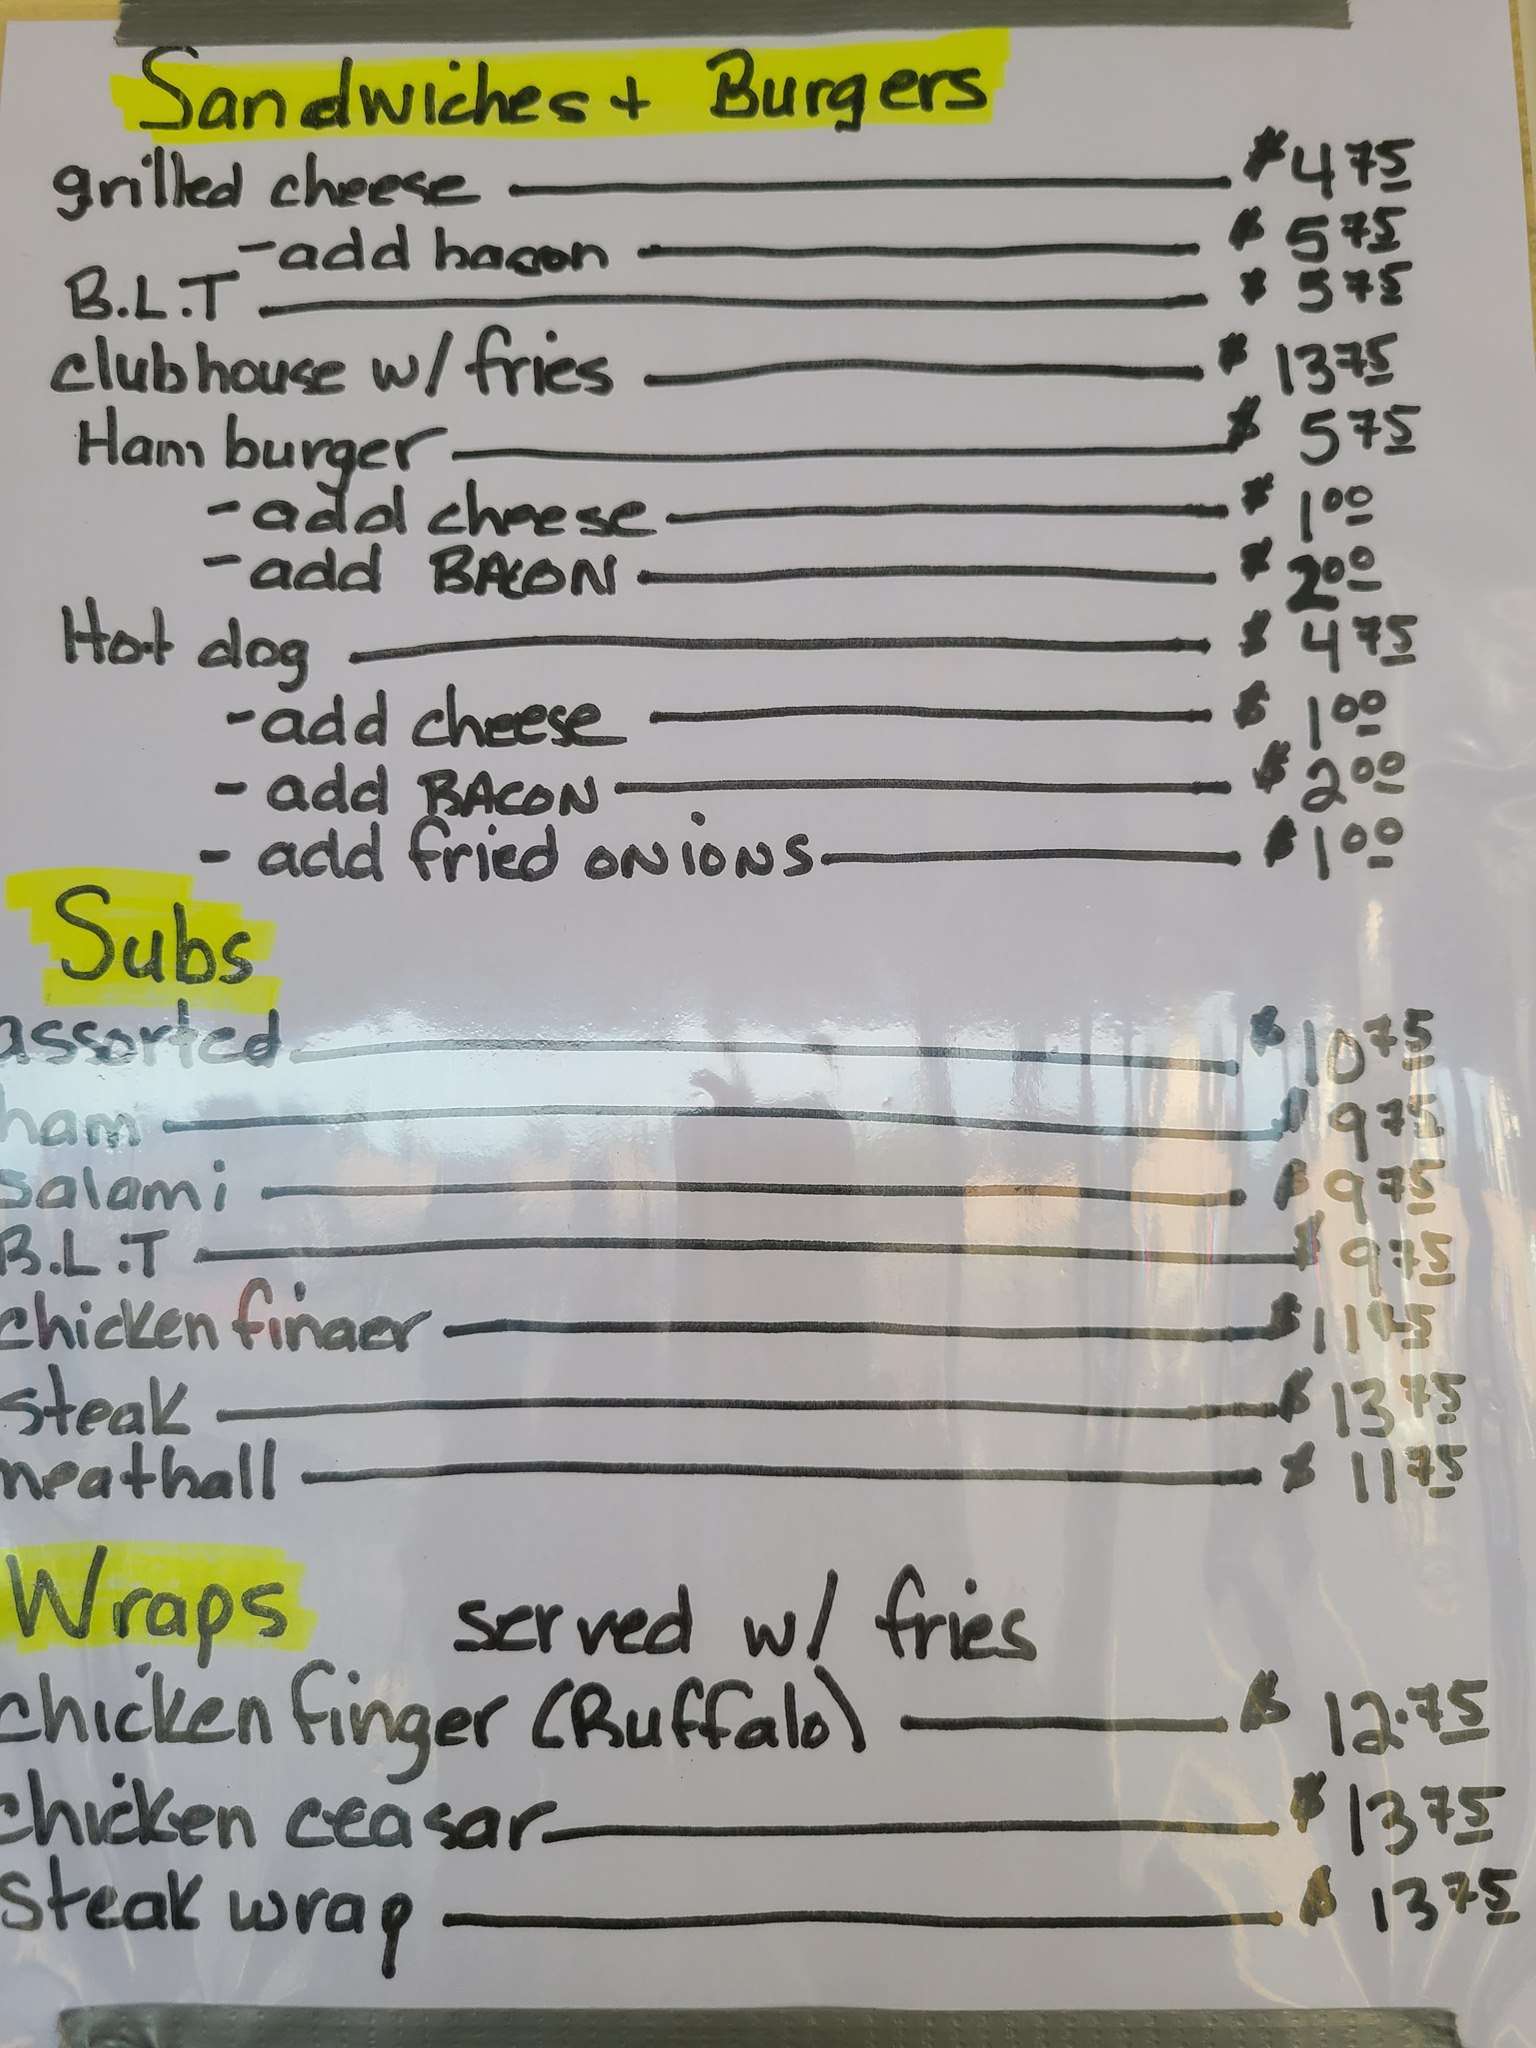 Sandwiches + Burgers
grilled cheese $4 75
- add bacon $5 75
B.L.T $5 75
clubhouse w/ fries $13 75
Hamburger $5 75
- add cheese $1 00
- add BACON $2 00
Hot dog $4 75
- add cheese $1 00
- add BACON $2 00
- add fried ONIONS $1 00
Subs
assorted $10 75
ham $9 75
salami $9 75
B.L.T $9 75
chicken finger $11 75
steak $13 75
meatball $11 75
Wraps served w/ fries
chicken finger (Buffalo) $12.75
chicken ceasar $13 75
steak wrap $13 75